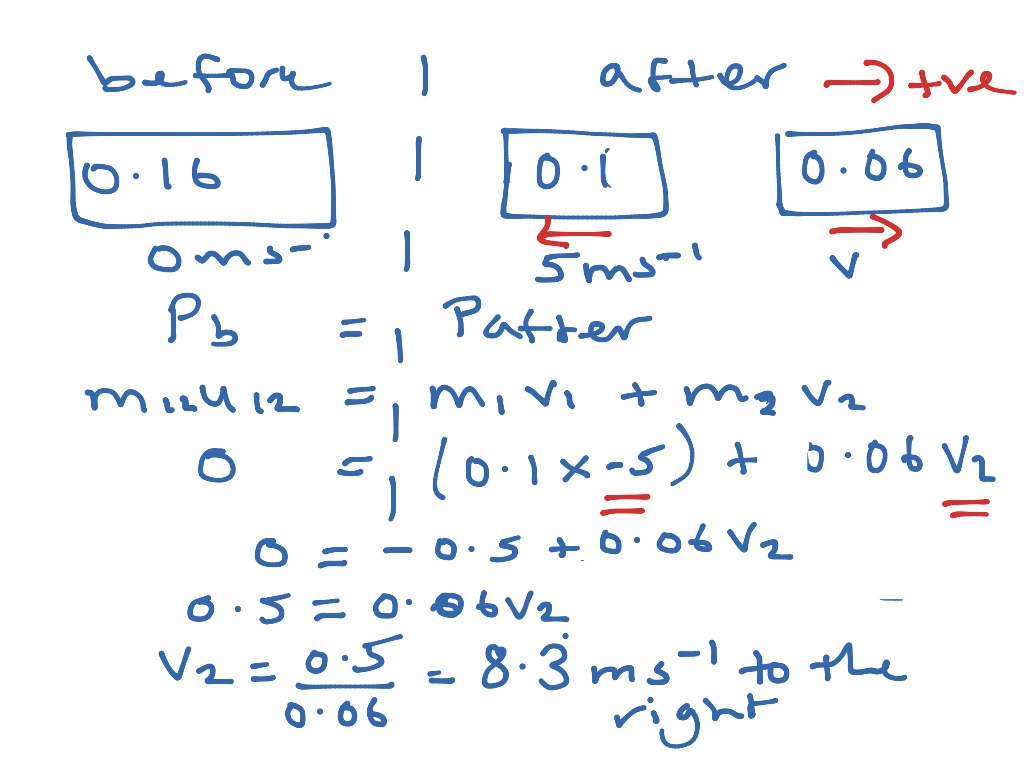 before | after → +ve
0.16 | 0.1 0.06
0 ms⁻¹ | 5 ms⁻¹ v
P_b = P_after
m₁₂u₁₂ = m₁ v₁ + m₂ v₂
0 = (0.1 × -5) + 0.06 V₂
0 = - 0.5 + 0.06 V₂
0.5 = 0.06 V₂
V₂ = 0.5/0.06 = 8.3̇ ms⁻¹ to the
right